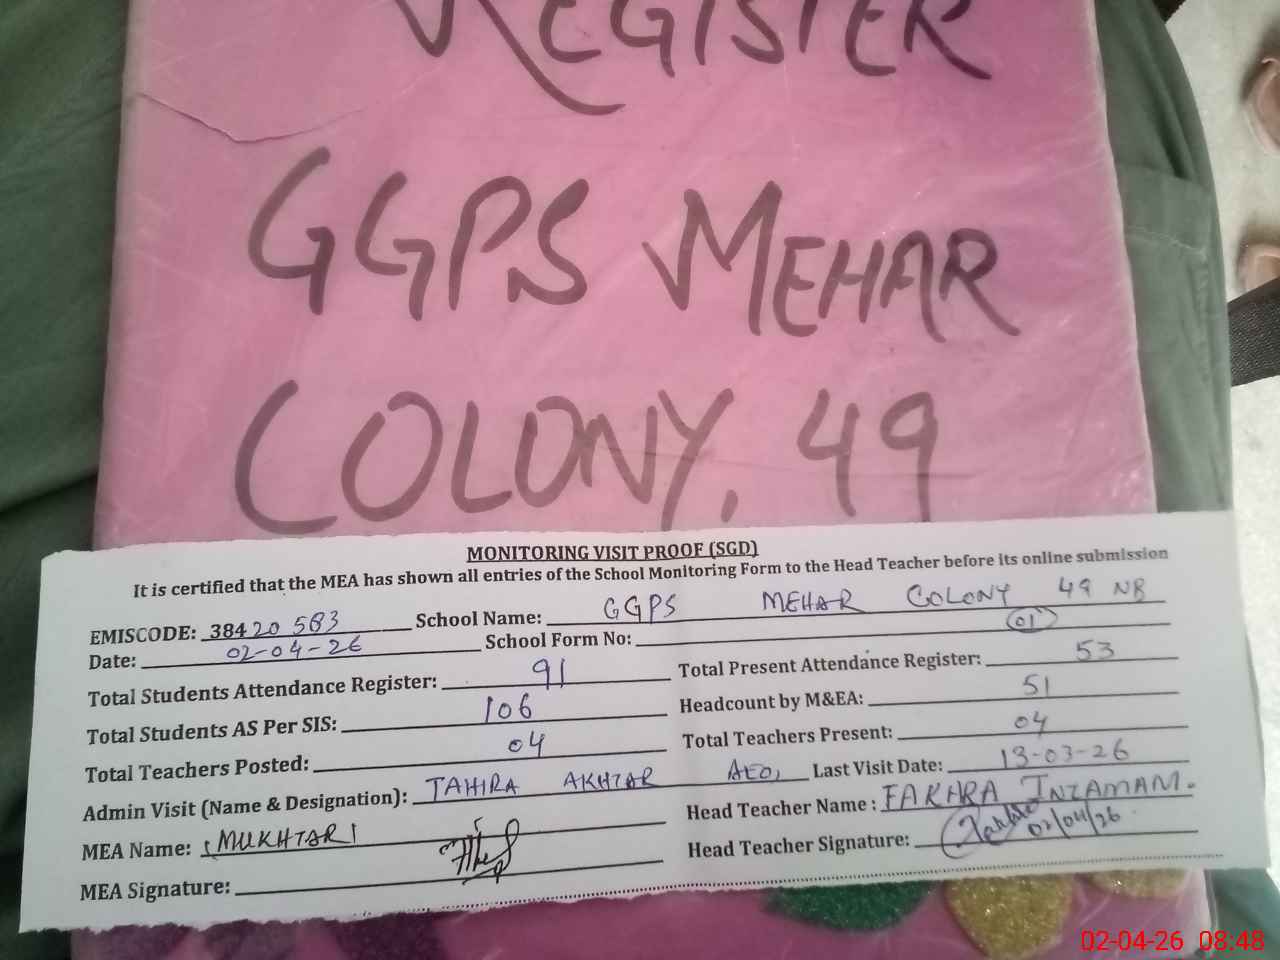 REGISTER
GGPS MEHAR
COLONY, 49
MONITORING VISIT PROOF (SGD)
It is certified that the MEA has shown all entries of the School Monitoring Form to the Head Teacher before its online submission
EMISCODE: 38420583 School Name: GGPS MEHAR COLONY 49 NB
Date: 02-04-26 School Form No: 01
Total Students Attendance Register: 91 Total Present Attendance Register: 53
Total Students AS Per SIS: 106 Headcount by M&EA: 51
Total Teachers Posted: 04 Total Teachers Present: 04
Admin Visit (Name & Designation): TAHIRA AKHTAR AEO, Last Visit Date: 13-03-26
MEA Name: MUKHTAR Head Teacher Name : FAKHRA INZAMAM.
MEA Signature: Head Teacher Signature: 02/04/26
02-04-26 08:48